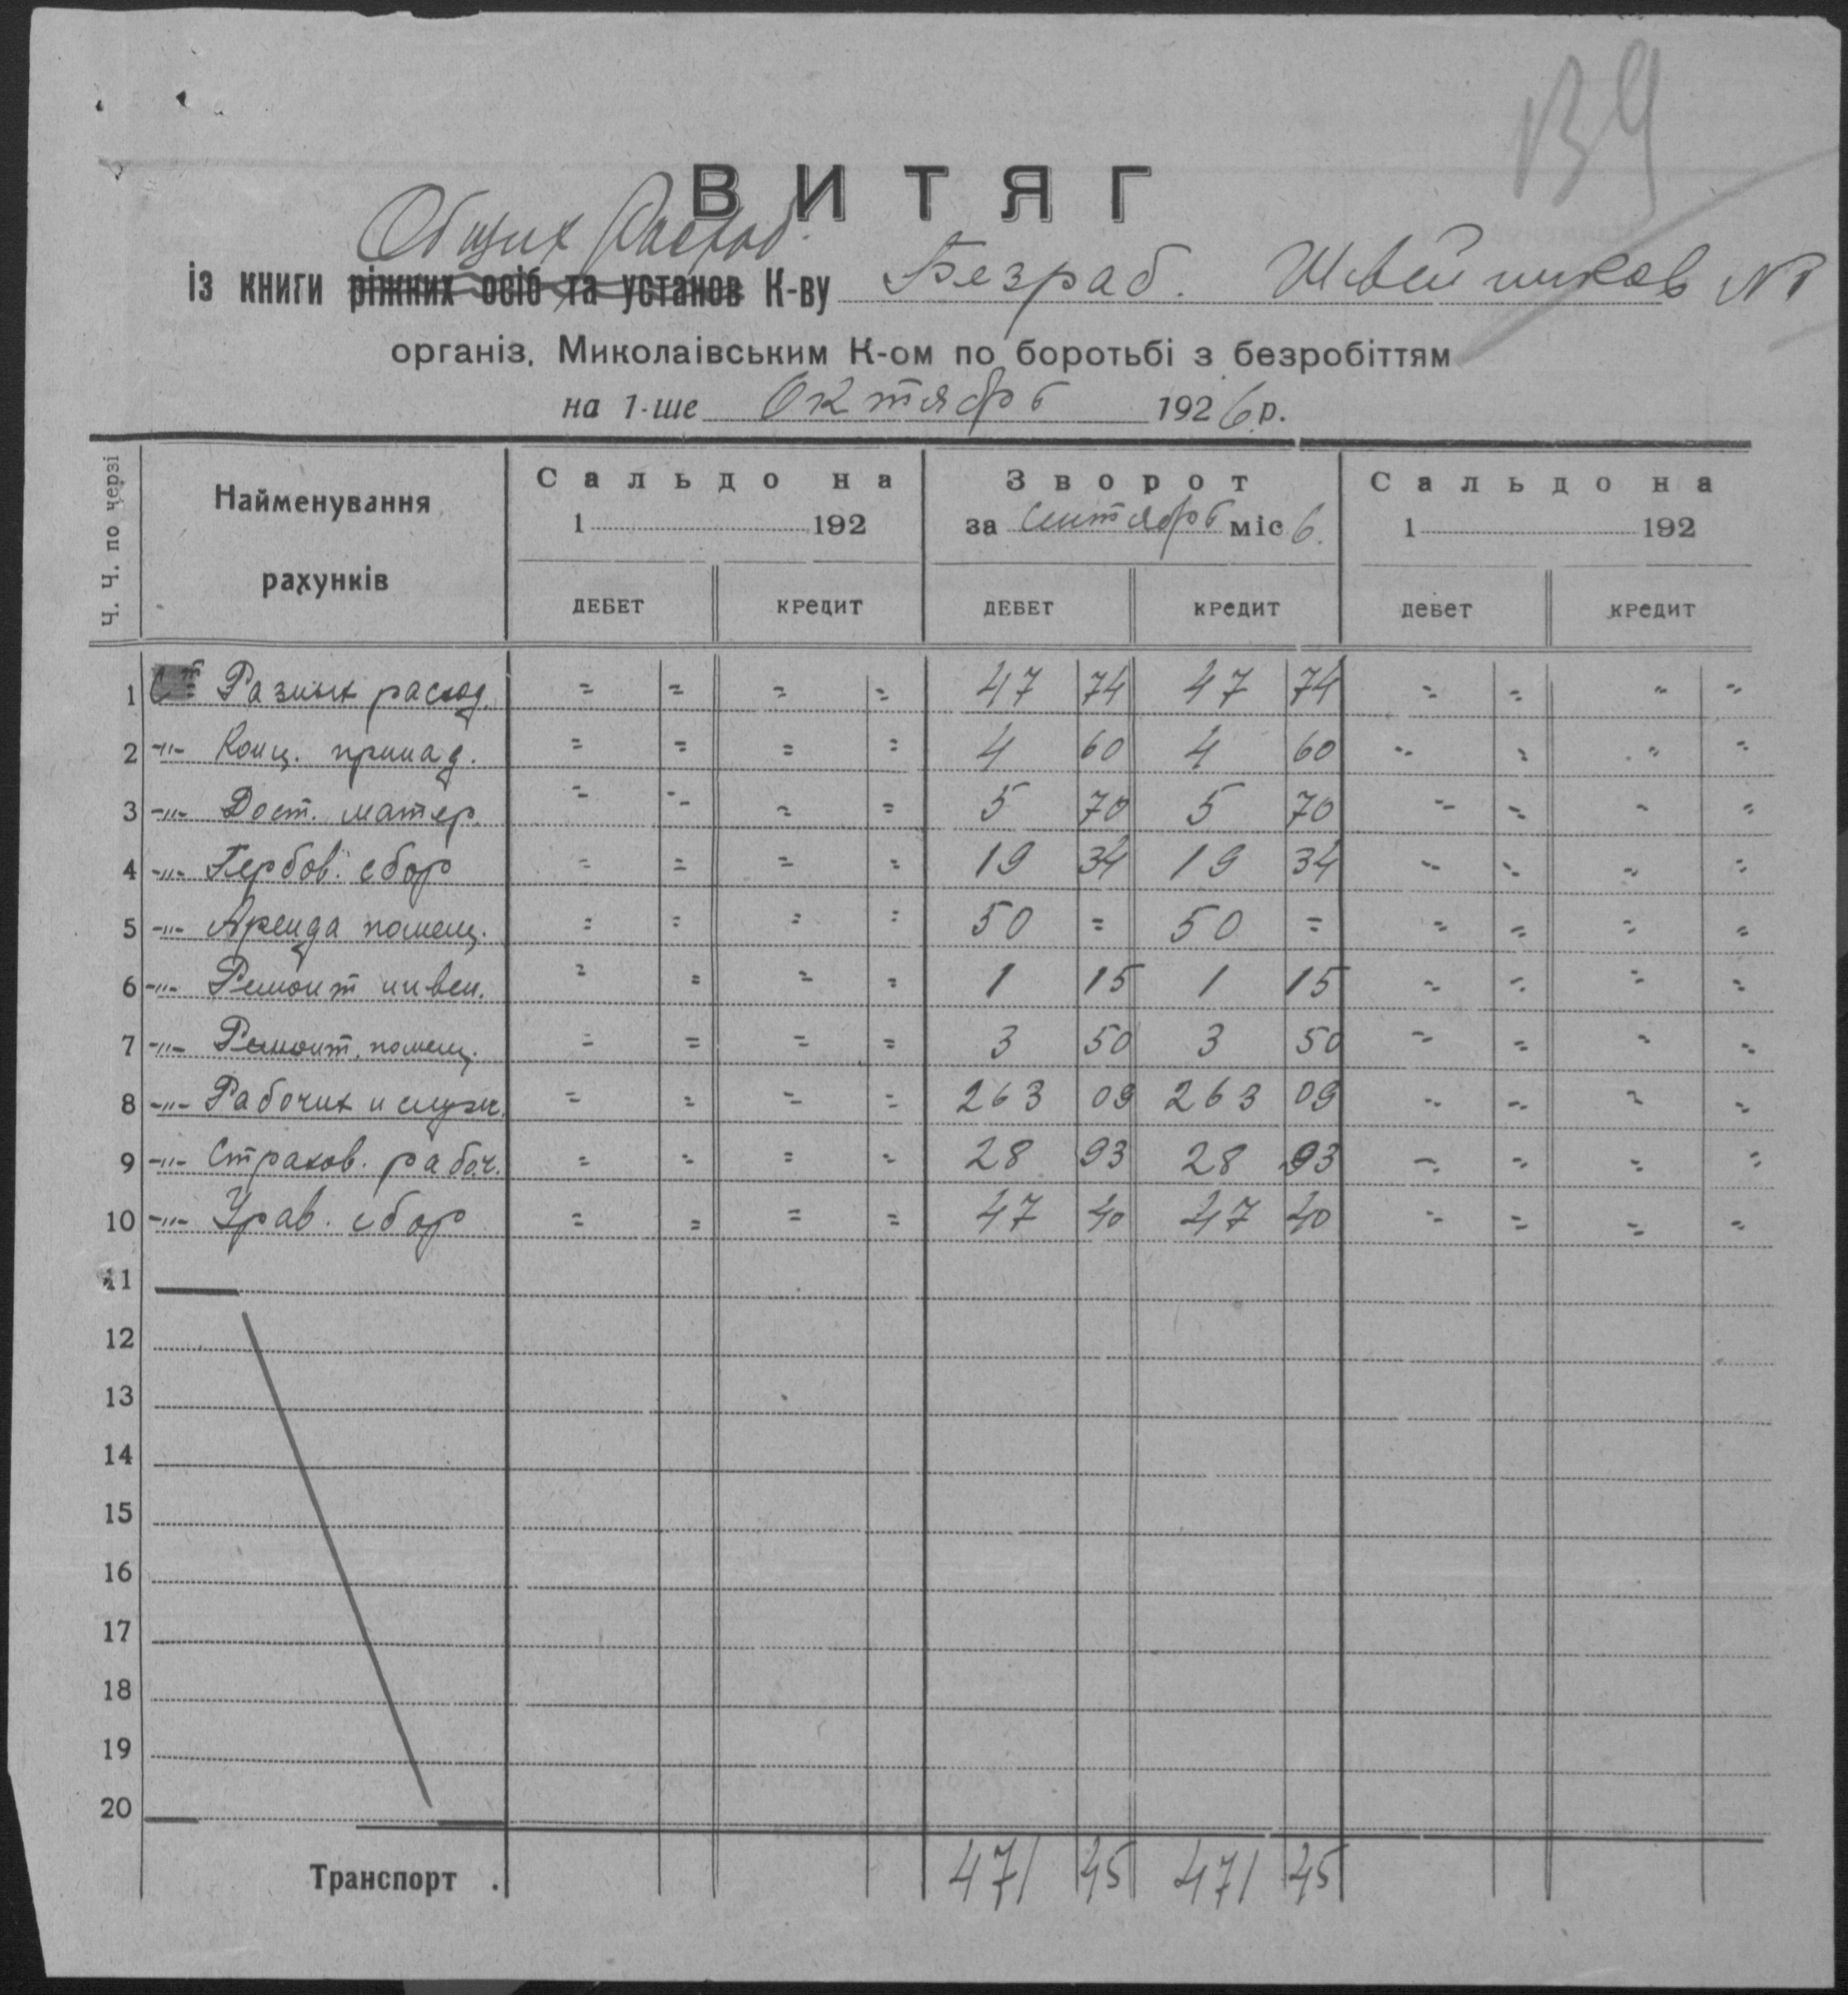 139
ВИТЯГ
Общих Расход.
із книги ріжних осіб та установ К-ву Безраб. Швейников №1
організ. Миколаівським К-ом по боротьбі з безробіттям
на 1-ше Октября 1926 р.
Ч. Ч. по черзі Найменування рахунків Сальдо на 1 192 Зворот за Сентябрь міс 6. Сальдо на 1 192
ДЕБЕТ КРЕДИТ ДЕБЕТ КРЕДИТ ДЕБЕТ КРЕДИТ
1 Разных расход. = = = = 47 74 47 74 = = = =
2 -"- Канц. принад. = = = = 4 60 4 60 = = = =
3 -"- Дост. матер. = = = = 5 70 5 70 = = = =
4 -"- Гербов. сбор = = = = 19 34 19 34 = = = =
5 -"- Аренда помещ. = = = = 50 = 50 = = = = =
6 -"- Ремонт инвен. = = = = 1 15 1 15 = = = =
7 -"- Ремонт. помещ. = = = = 3 50 3 50 = = = =
8 -"- Рабочих и служ. = = = = 263 09 263 09 = = = =
9 -"- Страхов. рабоч. = = = = 28 93 28 93 = = = =
10 -"- Урав. сбор = = = = 47 40 47 40 = = = =
11
12
13
14
15
16
17
18
19
20
Транспорт . 471 45 471 45